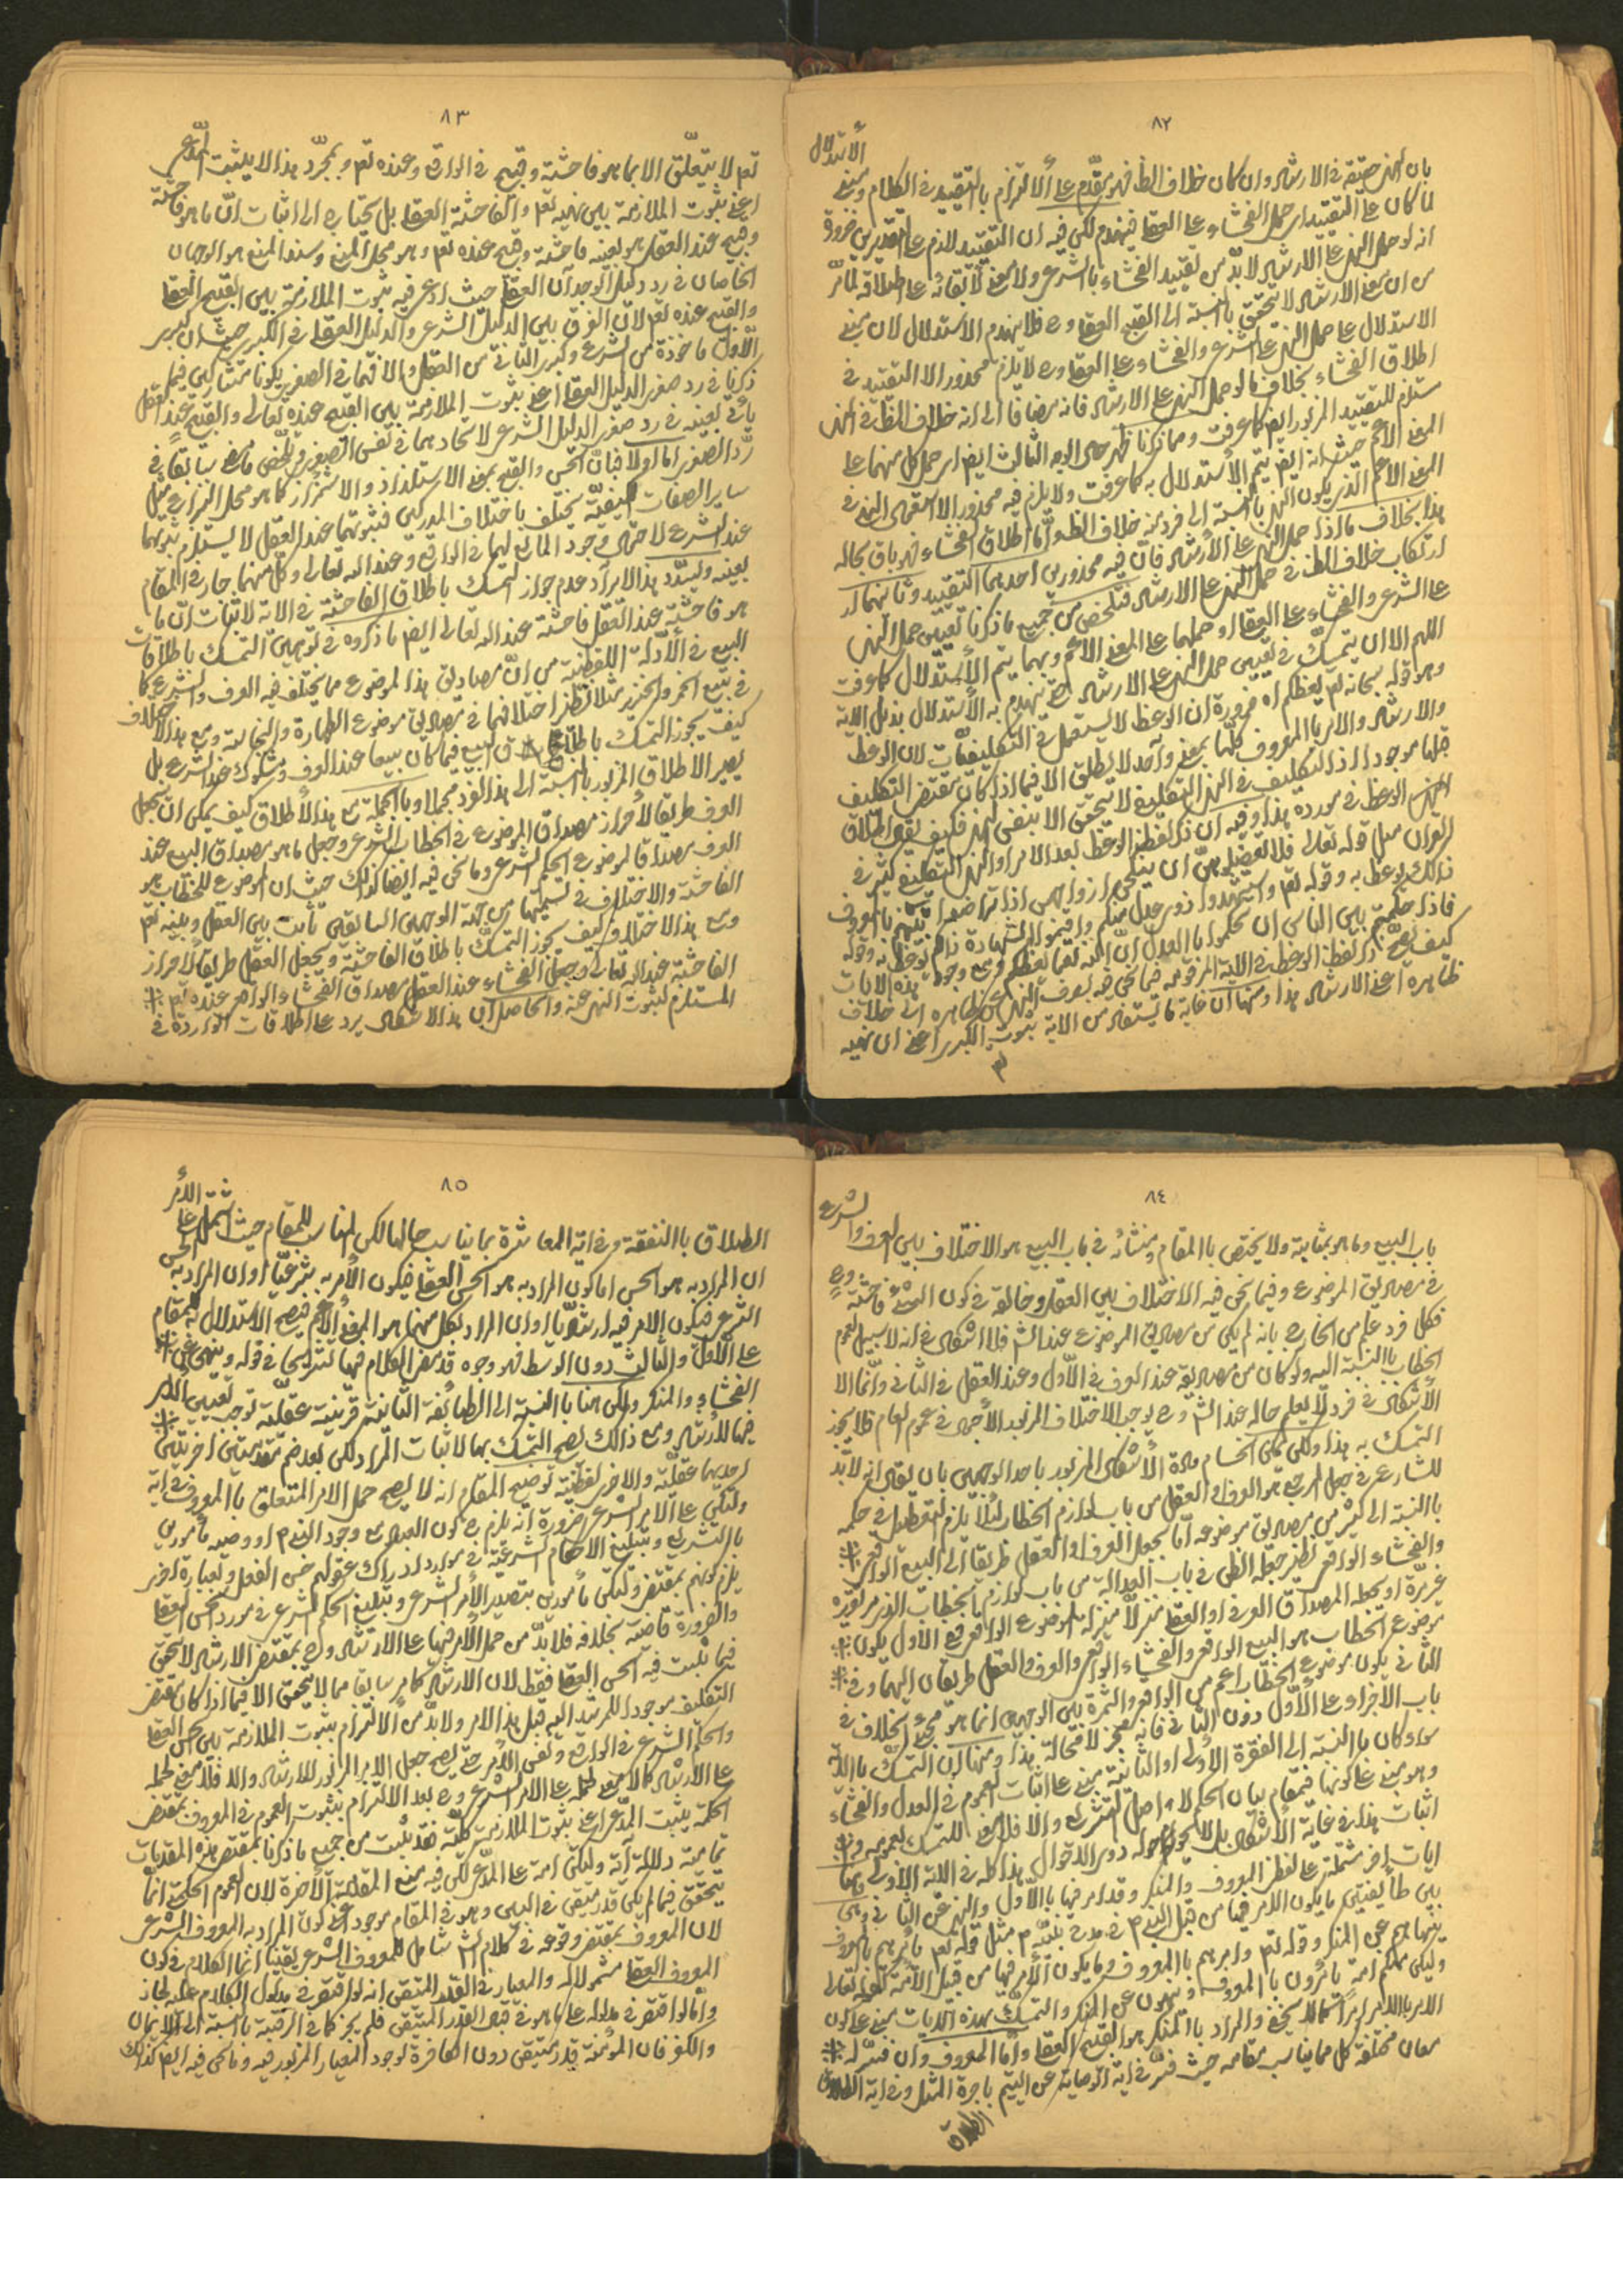 ٨٢
الاستدلال
بان النهى حقيقة فى الارشاد وان كان خلاف الظ فهو مقدّم على الالتزام بالتقييد فى الكلام
لما كان على التقييد اى حمل الفحشاء على العقلى فينهدم لكن فيه ان التقييد لازم على التقديرين ضرورة
انه لو حمل النهى على الارشاد لا بدّ من تقييد الفحشاء بالشرعى ولا معنى لابقائه على اطلاقه لما مرّ
من ان معنى الارشاد لا يتحقق بالنسبة الى القبيح العقلى وح فلا ينهدم الاستدلال لان مبنى
الاستدلال على حمل النهى على الشرعى والفحشاء على العقلى وح لا يلزم محذور الا التقييد فى
اطلاق الفحشاء بخلاف ما لو حمل النهى على الارشاد فانه مضافا الى انه خلاف الظ فى النهى
مستلزم للتقييد المزبور ايضا كما عرفت ومما ذكرنا ظهر حال الوجه الثالث ايضا اى حمل كل منهما على
المعنى الاعم حيث انه ايضا يتم الاستدلال به كما عرفت ولا يلزم فيه محذور الا استعمال النهى فى
المعنى الاعم الذى يكون النهى بالنسبة الى فرد منه خلاف الظ وامّا اطلاق الفحشاء فهو باق بحاله
هذا بخلاف ما اذا حمل النهى على الارشاد فانّ فيه محذورين احدهما التقييد وثانيهما
ارتكاب خلاف الظ فى حمل النهى على الارشاد فتلخص من جميع ما ذكرنا تعيين حمل النهى
على الشرعى والفحشاء على العقلى او حملهما على المعنى الاعم وبهما يتم الاستدلال كما عرفت
اللهم الا ان يتمسّك فى تعيين حمل النهى على الارشاد حتى ينهدم به الاستدلال بذيل الاية
وهو قوله سبحانه تعالى يعظكم اه ضرورة ان الوعظ لا يستعمل فى التكليفيّات لان الوعظ
والارشاد والامر بالمعروف كلّها بمعنى واحد لا يطلق الا فيما اذا كان مقتضى التكليف
قبلها موجودا اذ التكليف فى النهى التكليفى لا يتحقق الا بنفس النهى فكيف يصح اطلاق
الوعظ فى مورده هذا وفيه ان ذكر لفظ الوعظ بعد الامر او النهى التكليفى كثير فى
القران مثل قوله تعالى فلا تعضلوهنّ ان ينكحن ازواجهن اذا تراضوا بينهم بالمعروف
ذلك يوعظ به وقوله تع واشهدوا ذوى عدل منكم واقيموا الشهادة ذلكم يوعظ به وقوله
فاذا حكمتم بين الناس ان تحكموا بالعدل انّ الله نعمّا يعظكم ومع وجود هذه الايات
كيف يصحّ ذكر لفظ الوعظ فى الاية المرقومة فيما نحن فيه لصرف النهى عن ظاهره الى خلاف
ظاهره اعنى الارشاد هذا ومنها ان غاية ما يستفاد من الاية ثبوت الكبرى اعنى ان نهيه
تع
٨٣
تعم لا يتعلّق الا بما هو فاحشة وقبيح فى الواقع وعنده تعم وبمجرّد هذا لا يثبت المدّعى
اعنى ثبوت الملازمة بين نهيه تعم والفاحشة العقلى بل يحتاج الى اثبات انّ ما هو فاحشة
وقبيح عند العقل هو بعينه فاحشة وقبيح عنده تعم وهو محل المنع وسند المنع هو الوجهان
الخاصان فى رد دليل الوجدان العقلى حيث ادعى فيه ثبوت الملازمة بين القبيح العقلى
والقبيح عنده تعم لانّ الفرق بين الدليل الشرعى والدليل العقلى فى الكبرى حيث ان كبرى
الاوّل ماخوذة من الشرع وكبرى الثانى من العقل والافهما فى الصغرى يكونا متشاركين فيما
ذكرنا فى رد صغرى الدليل العقلى اعنى ثبوت الملازمة بين القبيح عنده تعالى والقبيح عند العقل
يأتى بعينه فى رد صغرى الدليل الشرعى لاتحادهما فى نفس الصغرى وملخّص ما مضى سابقا فى
ردّ الصغرى اما اولا فبانّ الحسن والقبح بمعنى الاستلذاذ والاشمئزاز كما هو محل النزاع مثل
ساير الصفات يختلف باختلاف المدركين فثبوتهما عند العقل لا يستلزم ثبوتهما
عند الشرع لاحتمال وجود المانع لهما فى الواقع وعند الله تعالى وكل منهما جار فى المقام
بعينه ويسدّد هذا الايراد عدم جواز التمسك باطلاق الفاحشة فى الاية لاثبات انّ ما
هو فاحشة عند العقل فاحشة عند الله تعالى ايضا ما ذكروه فى توهين التمسك باطلاقات
البيع فى الأدلّة اللفظية من انّ مصاديق هذا الموضوع مما يختلف فيه العرف والشرع كما
فى بيع الخمر والخنزير مثلا نظير اختلافهما فى مصاديق موضوع الطهارة والنجاسة ومع هذا الاختلاف
كيف يجوز التمسك باطلاق البيع فيما كان بيعا عند العرف ومشكوك عند الشرع بل
يصير الاطلاق المزبور بالنسبة الى هذا الفرد مجملا وبالجملة مع هذا الاطلاق كيف يمكن ان يجعل
العرف طريقا لأحراز مصداق الموضوع فى الخطاب الشرعى وجعل ما هو مصداق البيع عند
العرف مصداقا لموضوع الحكم الشرعى وما نحن فيه ايضا كذلك حيث ان الموضوع للخطاب هو
الفاحشة والاختلاف فى تسميتها من جهة الوجهين السابقين ثابت بين العقل وبينه تعم
ومع هذا الاختلاف كيف يجوز التمسّك باطلاق الفاحشة ويجعل العقل طريقا لاحراز
الفاحشة عند الله تعالى ويجعل الفحشاء عند العقل مصداق الفحشاء الواقعى عنده تعم
المستلزم لثبوت النهى عنه والحاصل ان هذا الاشكال يرد على اطلاقات الواردة فى
٨٤
الشرع
باب البيع وما هو بمثابته ولا يختص بالمقام ومنشائه فى باب البيع هو الاختلاف بين العرف والشرع
فى مصاديق الموضوع وفيما نحن فيه الاختلاف بين العقل وخالقه فى كون الشئ فاحشة وح
فكل فرد علم من الخارج بانه لم يكن من مصاديق الموضوع عند الشم فلا اشكال فى انه لا سبيل لعموم
الخطاب بالنسبة اليه ولو كان من مصاديقه عند العرف فى الأوّل وعند العقل فى الثانى وانّما الا
الأشكال فى فرد لا يعلم حاله عند الشم وح يوجب الاختلاف المزبور الأجمال فى عموم العام فلا يجوز
التمسك به هذا ولكن يمكن انحسام مادة الأشكال المزبور باحد الوجهين بان يقال انه لا بدّ
للشارع فى جعل المرجع هو العرف او العقل من باب لوازم الخطاب لئلا يلزم التعطيل فى حكمه
بالنسبة الى كثير من مصاديق موضوعه امّا بجعل العرف او العقل طريقا الى البيع الواقعى
والفحشاء الواقعى نظير جعله الظن فى باب العدالة من باب لوازم الخطاب
او يجعله المصداق العرفى او العقلى منزلا منزلة الموضوع الواقعى فعلى الاول يكون
موضوع الخطاب هو البيع الواقعى والفحشاء الواقعى والعرف والعقل طريقان اليهما وفى
الثانى يكون موضوع الخطاب اعم من الواقع والثمرة بين الوجهين انما هو مجئ الخلاف فى
باب الأجزاء على الأوّل دون الثانى فانه مجز لا محالة هذا ومنها ان التمسّك بالاية
سواء كان بالنسبة الى الفقرة الاولى او الثانية مبنى على اثبات العموم فى العدل والفحشاء
وهو مبنى على كونها فى مقام بيان الحكم لا اصل التشريع والا فلا معنى للتمسك بعمومه و
اثبات هذا فى غاية الاشكال بل دونه الاهوال هذا كله فى الاية الاولى ومنها
ايات اخر مشتملة على لفظ المعروف والمنكر وقد امر فيها بالأول والنهى عن الثانى وهى
بين طائفتين ما يكون الامر فيها من قبل النبى ص فى مدح نبيّه ص مثل قوله تعم يأمرهم بالمعروف
وينهاهم عن المنكر وقوله تعم وامرهم بالمعروف وما يكون الأمر فيها من قبل الأمّة كقوله تعالى
وليكن منكم امة يأمرون بالمعروف وينهون عن المنكر والتمسّك بهذه الايات مبنى على كون
الامر الزاميا كما لا يخفى والمراد بالمنكر هو القبيح العقلى وأمّا المعروف وان فسّر له
معان مختلفة كل مما يناسب مقامه حيث فسّر فى اية الوصاية عن اليتيم باجرة المثل وفى اية الطلاق
الطلاق
٨٥
الأمر
الطلاق بالنفقة وفى اية المعاشرة بما يناسب حالها لكن المناسب للمقام حيث اشتمل على
ان المراد به هو الحسن اما كون المراد به هو الحسن العقلى فيكون الأمر به شرعيّا او ان المراد به الحسن
الشرعى فيكون الامر فيه ارشاديا او ان المراد بكل منهما هو المعنى الأعم فيصح الاستدلال للمقام
على الأوّل والثالث دون الوسط فهو وجوه قد مضى الكلام فيها تشريحا فى قوله وينهى عن
الفحشاء والمنكر ولكن هنا بالنسبة الى الطائفة الثانية قرينة عقليّة توجب تعيين الامر
فيها للأرشاد ومع ذلك يصح التمسك بها لاثبات المراد لكن بعد ضم مقدمتين اخريتين
احديهما عقليّة والاخرى لفظيّة توضيح المقام انه لا يصح حمل الامر المتعلق بالمعروف فى اية
ولتكن على الامر الشرعى ضرورة انه يلزم ح كون العباد مع وجود النبى ص او وصيه مأمورين
بالتشريع وتبليغ الاحكام الشرعيّة فى موارد ادراك عقولهم حسن الفعل وبعبارة اخرى
يلزم كونهم بمقتضى ولتكن مأمورين بتصدير الأمر الشرعى وتبليغ الحكم الشرعى فى مورد الحسن العقلى
والضرورة قاضية بخلافه فلا بدّ من حمل الأمر فيها على الارشاد وح بمقتضى الارشاد لا يتحقق
فيما يثبت فيه الحسن العقلى فقط لان الارشاد كما مر سابقا مما لا يتحقق الا فيما اذا كان مقتضى
التكليف موجودا للمرشد اليه قبل هذا الامر ولا بدّ من الالتزام بثبوت الملازمة بين الحسن العقلى
والحكم الشرعى فى الواقع ونفس الأمر حتى يصح جعل الامر المزبور للارشاد والا فلا معنى لحمله
على الأرشاد كما لا معنى لحمله على الامر الشرعى وح بعد الالتزام بثبوت العموم فى المعروف بمقتضى
الحكمة يثبت المدّعى اعنى ثبوت الملازمة كليّة فقد ثبت من جميع ما ذكرنا بمقتضى هذه المقدمات
تمامية دلالة آية ولتكن امة على المدّعى لكن فيه منع المقدّمة الأخيرة لان العموم الحكمتى انما
يتحقق فيما لم يكن قدر متيقن فى البين وهو فى المقام موجود اعنى كون المراد به المعروف الشرعى
لان المعروف بمقتضى وقوعه فى كلام الشم شامل للمعروف الشرعى يقينا انما الكلام فى كون
المعروف العقلى مشمولا له والمعيار فى القدر المتيقن انه لو اقتصر فى مدلول الكلام عليه لجاز
وامّا لو اقتصر فى مدلوله على ما هو فى قبال القدر المتيقن فلم يجز كما فى الرقبة بالنسبة الى الايمان
والكفر فان المؤمنة قدر متيقن دون الكافرة لوجود المعيار المزبور فيه وما نحن فيه ايضا كذلك